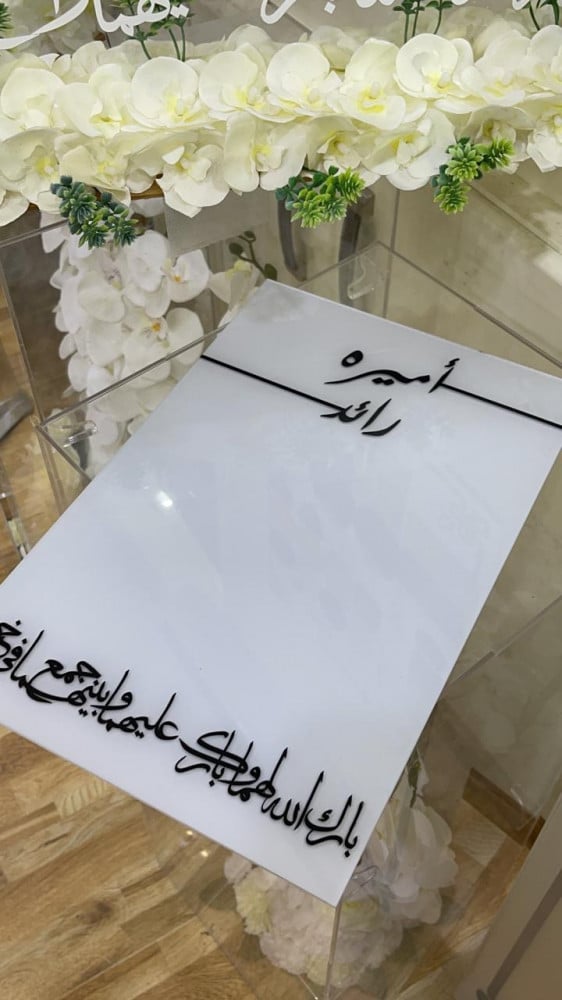 أميره
رائد
بارك الله لهما وبارك عليهما وجمع بينهما في